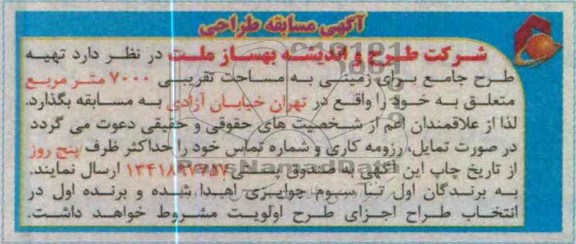 آگهی مسابقه طراحی
شرکت طرح و اندیشه بهساز ملت در نظر دارد تهیه
طرح جامع برای زمینی به مساحت تقریبی ۷۰۰۰ متر مربع
متعلق به خود را واقع در تهران خیابان آزادی به مسابقه بگذارد.
لذا از علاقمندان اعم از شخصیت های حقوقی و حقیقی دعوت می گردد
در صورت تمایل، رزومه کاری و شماره تماس خود را حداکثر ظرف پنج روز
از تاریخ چاپ این آگهی به صندوق پستی ۱۳۴۱۸۹۷۷۵۷ ارسال نمایند.
به برندگان اول تا سوم جوایزی اهدا شده و برنده اول در
انتخاب طراح اجزای طرح اولویت مشروط خواهد داشت.